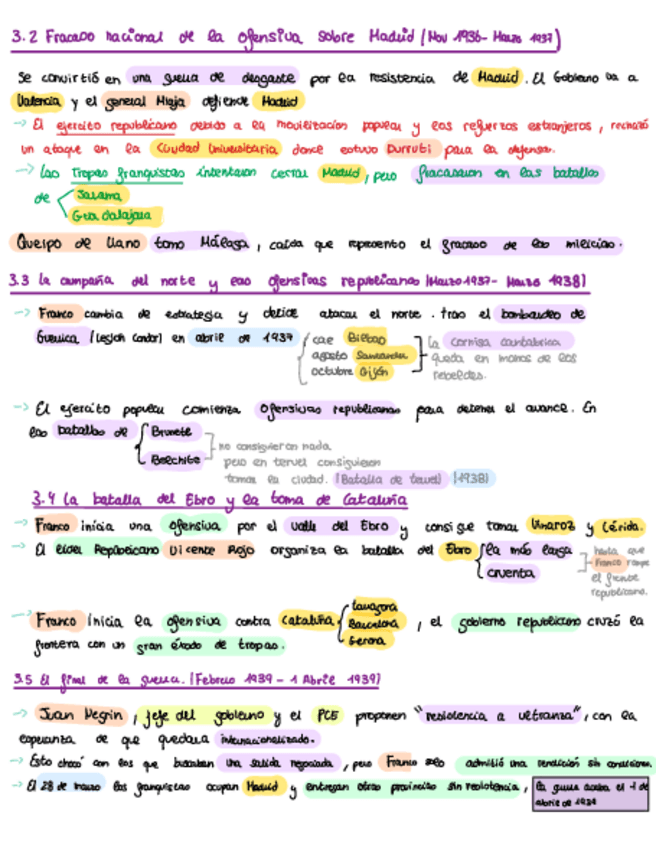 3.2 Fracaso nacional de la ofensiva sobre Madrid (Nov 1936- Marzo 1937)
Se convirtió en una guerra de desgaste por la resistencia de Madrid. El Gobierno va a
Valencia y el general Miaja defiende Madrid
-> El ejercito republicano debido a la movilización popular y los refuerzos extranjeros, rechazó
un ataque en la Ciudad Universitaria donde estuvo Durruti para la defensa.
-> Las Tropas franquistas intentaron cercar Madrid, pero fracasaron en las batallas
de Jarama
Guadalajara
Queipo de Llano tomo Málaga, caída que represento el fracaso de las milicias.
3.3 la campaña del norte y las ofensivas republicanas (Marzo 1937- Marzo 1938)
-> Franco cambia de estrategia y decide atacar el norte. tras el bombardeo de
Guernica (Legión Condor) en abril de 1937
cae Bilbao
agosto Santander
octubre Gijón
la cornisa cantabrica
queda en manos de los
rebeldes.
-> El ejercito popular comienza ofensivas republicanas para detener el avance. En
las batallas de Brunete
Belchite
no consiguieron nada
pero en teruel consiguieron
tomar la ciudad. (Batalla de teruel) (1938)
3.4 La batalla del Ebro y la toma de Cataluña
-> Franco inicia una ofensiva por el valle del Ebro y consigue tomar Vinaroz y Lérida.
-> El líder Republicano Vicente Rojo organiza la batalla del Ebro
la más larga
cruenta
hasta que
Franco rompe
el frente
republicano.
-> Franco inicia la ofensiva contra cataluña
Tarragona
Barcelona
Gerona
, el gobierno republicano cruzó la
frontera con un gran éxodo de tropas.
3.5 El final de la guerra. (Febrero 1939 - 1 Abril 1939)
-> Juan Negrin, jefe del gobierno y el PCE proponen "resistencia a ultranza", con la
esperanza de que quedara internacionalizado.
-> Esto chocó con los que buscaban una salida negociada, pero Franco solo admitió una rendición sin condiciones.
-> El 28 de marzo las franquistas ocupan Madrid y entregan otras provincias sin resistencia,
la guerra acaba el 1 de
abril de 1939